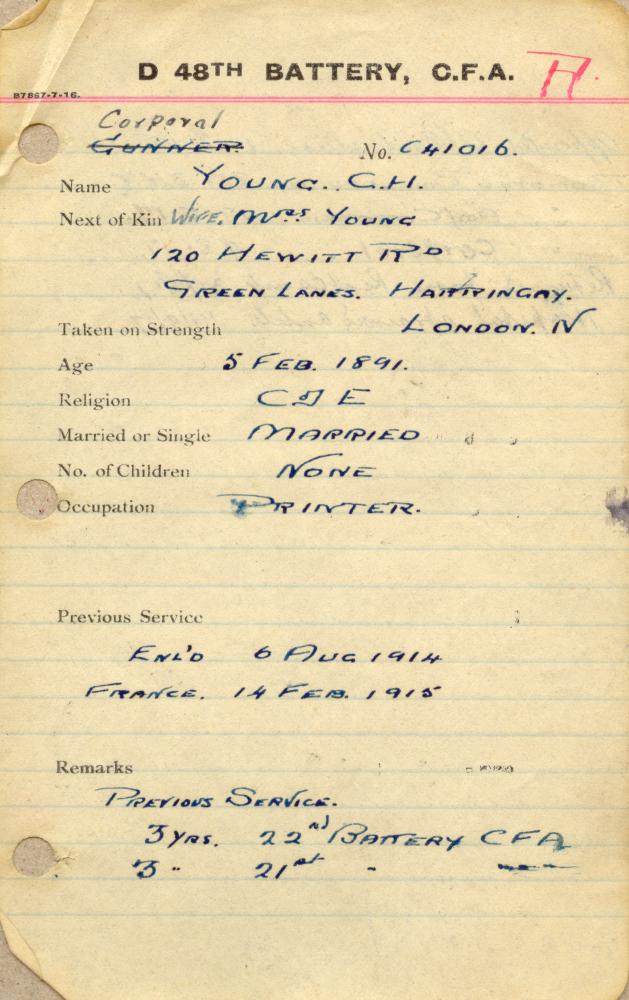 D 48TH BATTERY, C.F.A. H.
B7867-7-16.
Corporal
GUNNER No. C41016.
Name YOUNG. C.H.
Next of Kin WIFE. MRS YOUNG
120 HEWITT RD
GREEN LANES. HARRINGAY.
LONDON. N
Taken on Strength
Age 5 FEB. 1891.
Religion C of E
Married or Single MARRIED
No. of Children NONE
Occupation PRINTER.
Previous Service
ENL'D 6 AUG 1914
FRANCE. 14 FEB. 1915
Remarks
PREVIOUS SERVICE.
3 YRS. 22nd BATTERY CFA
3 " 21st "